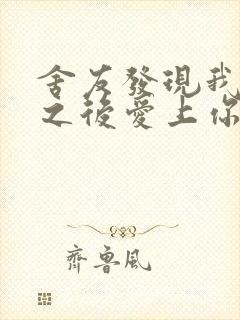 舍友發現我
之後愛上你
齊魯風